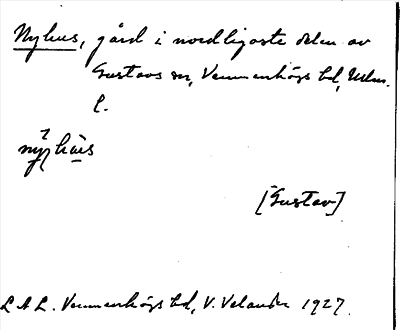 Nyhus, gård i nordligaste delen av
Gustavs sn, Vemmenhögs hd, Malm.
l.
[Gustav]
L A L. Vemmenhögs hd, V. Velander 1927.